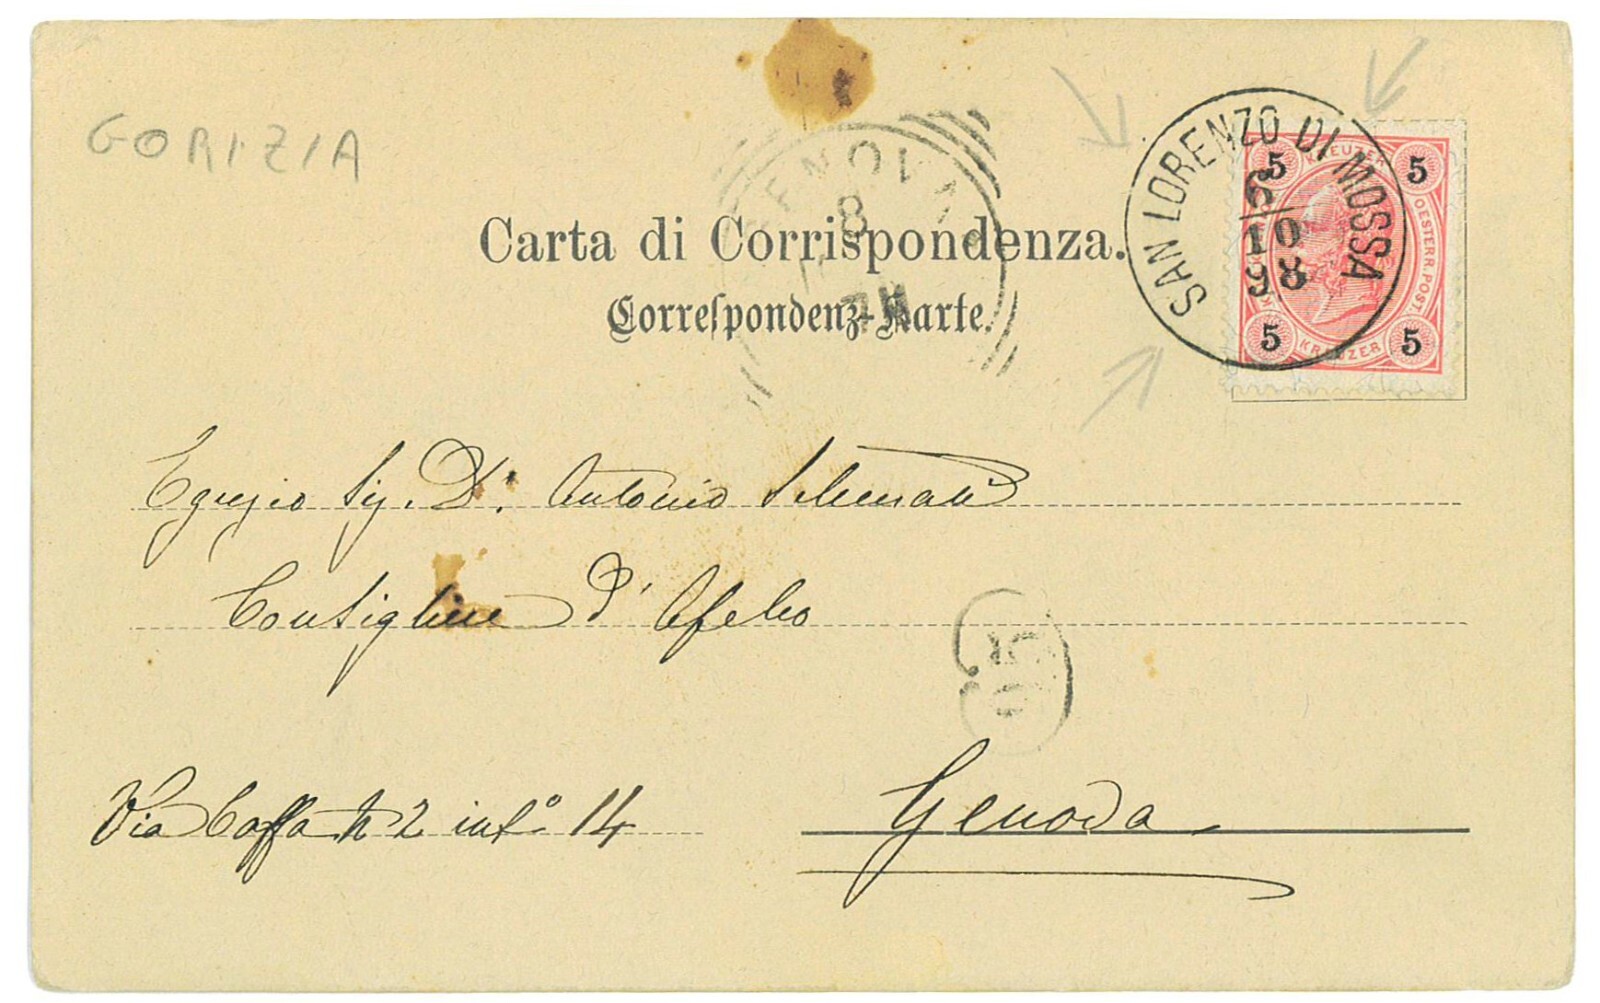 GORIZIA
GENOVA
8
Carta di Corrispondenza.
Correspondenz-Karte.
SAN LORENZO DI MOSSA
6
10
98
5 KREUZER 5
OESTERR. POST.
5 KREUZER 5
Egregio Sig. Dr. Antonio
Consigliere d'Apello
Via Caffa N 2 int.° 14
Genova